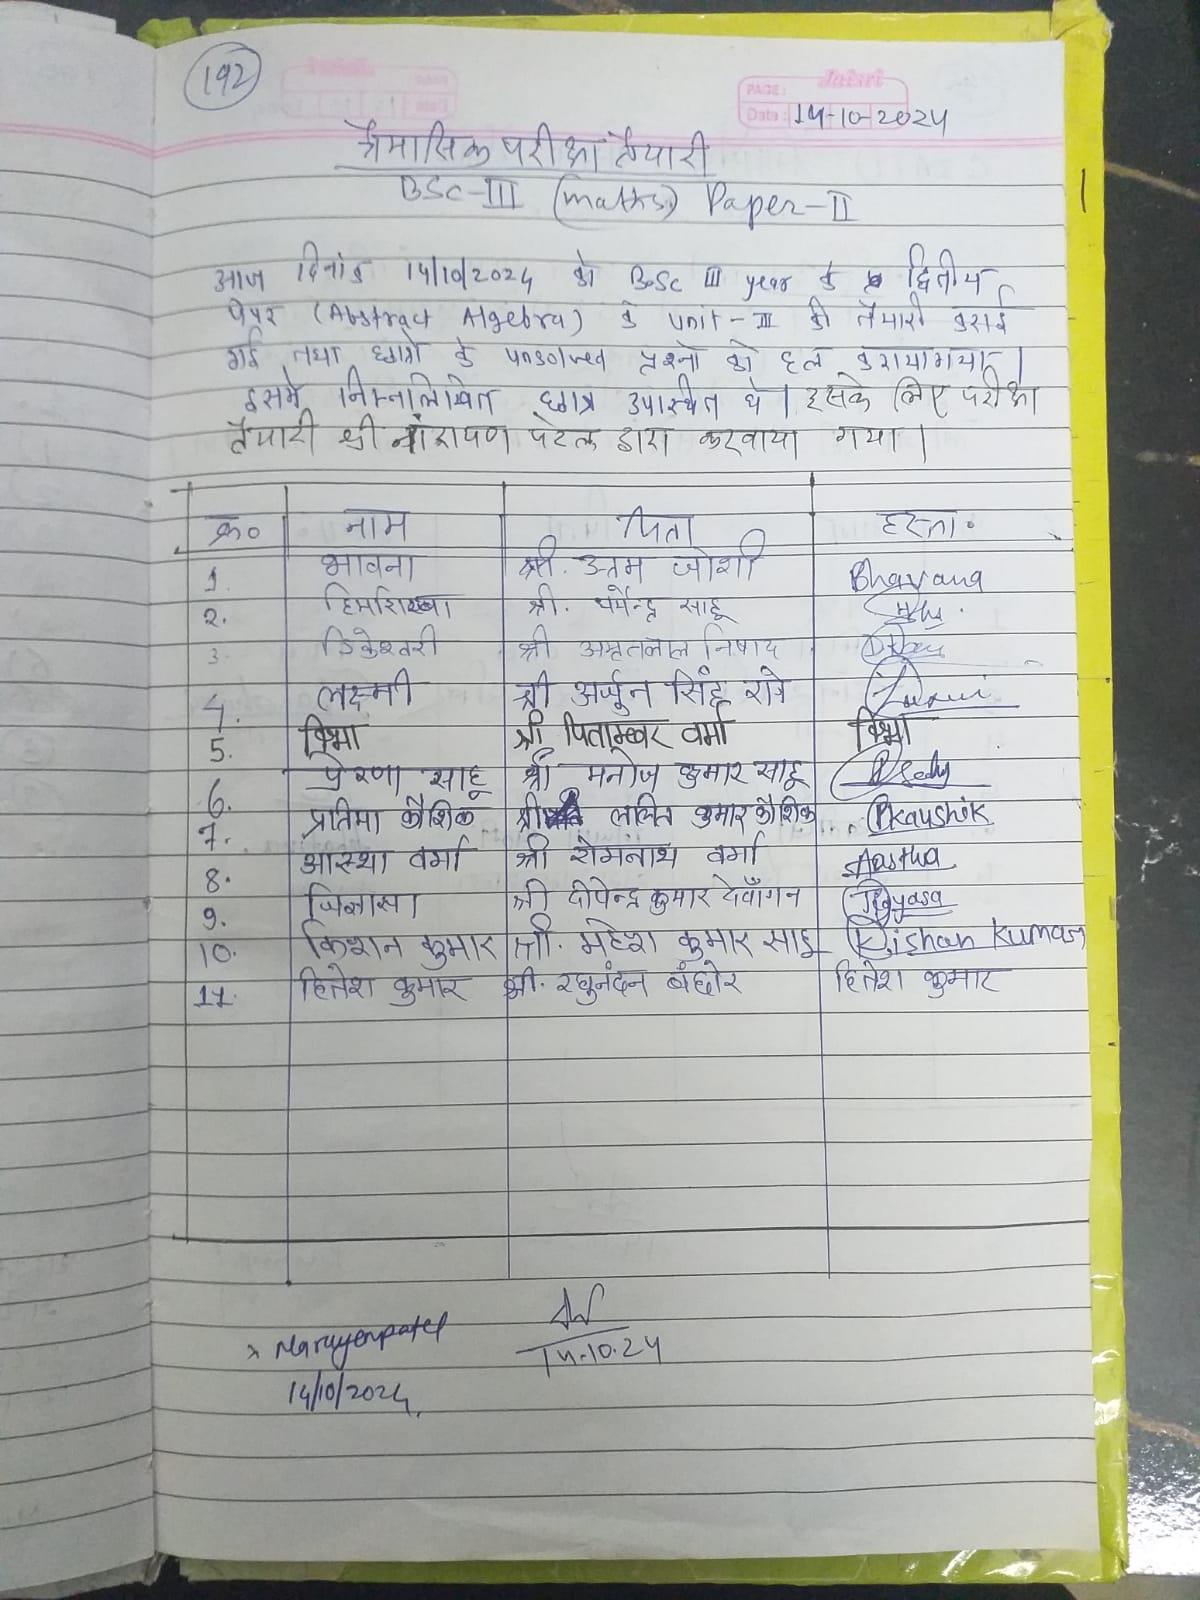 192
PAGE:
Date: 14-10-2024
त्रैमासिक परीक्षा तैयारी
BSc-III (maths) Paper-II
आज दिनांक 14/10/2024 को BSc III year के द्वितीय
पेपर (Abstract Algebra) के unit-III की तैयारी कराई
गई तथा छात्रों के unsolved प्रश्नों को हल कराया गया।
इसमें निम्नलिखित छात्र उपस्थित थे। इसके लिए परीक्षा
तैयारी श्री नारायण पटेल द्वारा करवाया गया।
क्र० नाम पिता हस्ता.
1. भावना श्री. उत्तम जोशी Bhavana
2. हिमशिखा श्री. धर्मेन्द्र साहू
3. डिकेश्वरी श्री अमृतलाल निषाद
4. लक्ष्मी श्री अर्जुन सिंह रात्रे Laxmi
5. विभा श्री पिताम्बर वर्मा विभा
6. प्रेरणा साहू श्री मनोज कुमार साहू
7. प्रतिमा कौशिक श्री ललित कुमार कौशिक Pkaushik
8. आस्था वर्मा श्री सोमनाथ वर्मा Aastha
9. जिज्ञासा श्री दीपेन्द्र कुमार देवाँगन Jigyasa
10. किशन कुमार श्री. महेश कुमार साहू Kishan Kumar
11. हितेश कुमार श्री. रघुनंदन बंछोर हितेश कुमार
Narayenpatel
14/10/2024
14.10.24